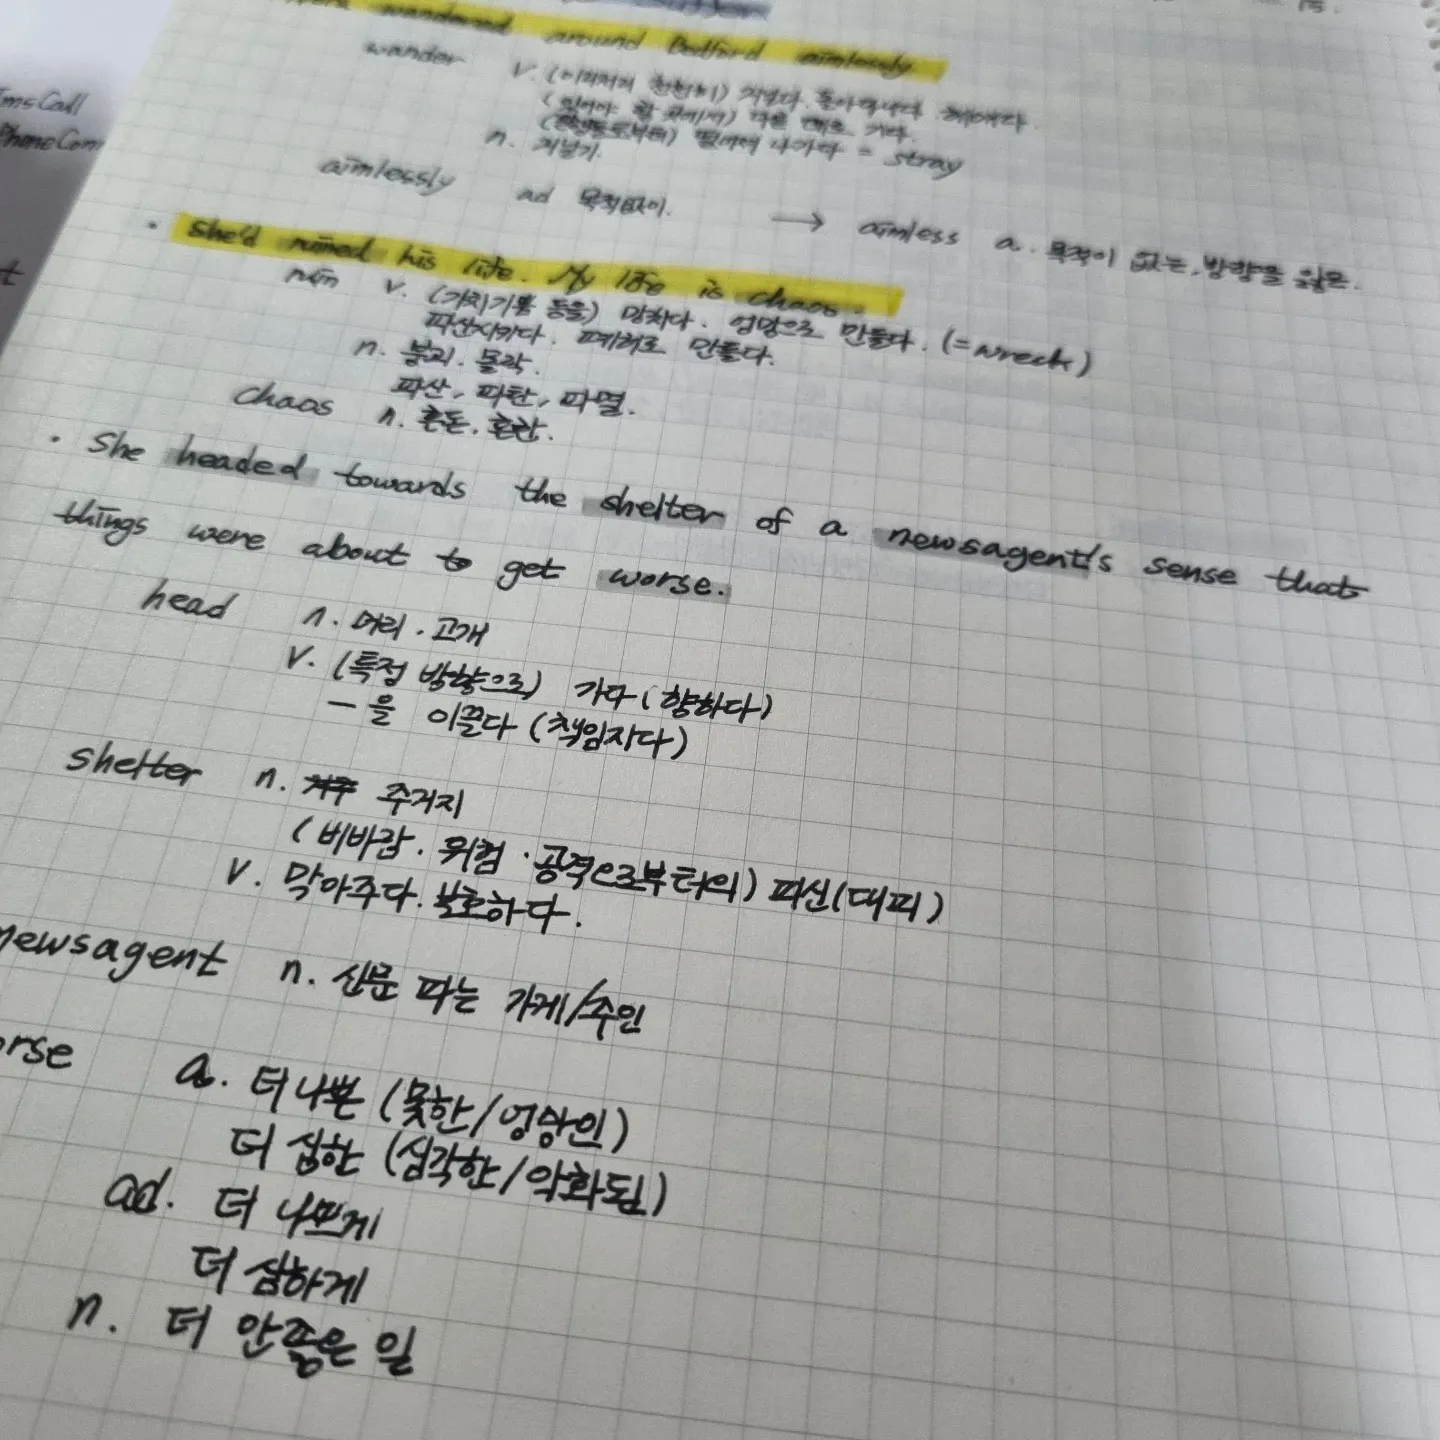 wandered around Bedford aimlessly
wander v. (이리저리 천천히) 거닐다. 돌아다니다. 헤매다.
(있어야 할 곳에서) 다른 데로 가다.
떨어져 나가다 = stray
n. 거닐기.
aimlessly ad 목적없이. → aimless a. 목적이 없는, 방향을 잃은.
· She'd ruined his life. My life is chaos.
ruin v. (가치기쁨 등을) 망치다. 엉망으로 만들다. (=wreck)
파산시키다. 폐허로 만들다.
n. 붕괴. 몰락.
파산, 파탄, 파멸.
chaos n. 혼돈, 혼란.
· She headed towards the shelter of a newsagent's sense that
things were about to get worse.
head n. 머리. 고개
v. (특정 방향으로) 가다(향하다)
-을 이끌다 (책임지다)
shelter n. 주거지
(비바람. 위험·공격으로부터의) 피신(대피)
v. 막아주다. 보호하다.
newsagent n. 신문 파는 가게/주인
orse a. 더 나쁜 (못한/엉망인)
더 심한 (심각한/악화된)
ad. 더 나쁘게
더 심하게
n. 더 안좋은 일
ImsCall
PhoneCom